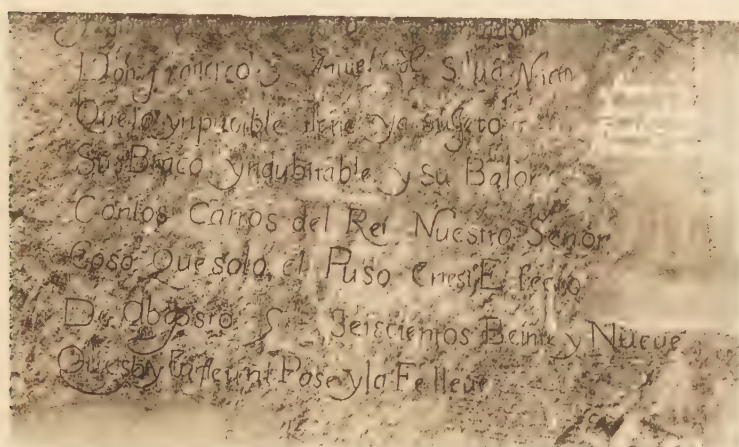 Don francico Silua Nieto
Quelo ynpucible tiene ya sugeto
Su Braco yndubitable y su Balor
Conlos Carros del Rei Nuestro Senor
Cosa Que solo el Puso enesteEfecto
De Abgosto Seiscientos Beinte y Nueve
Pase yla Fe lleue